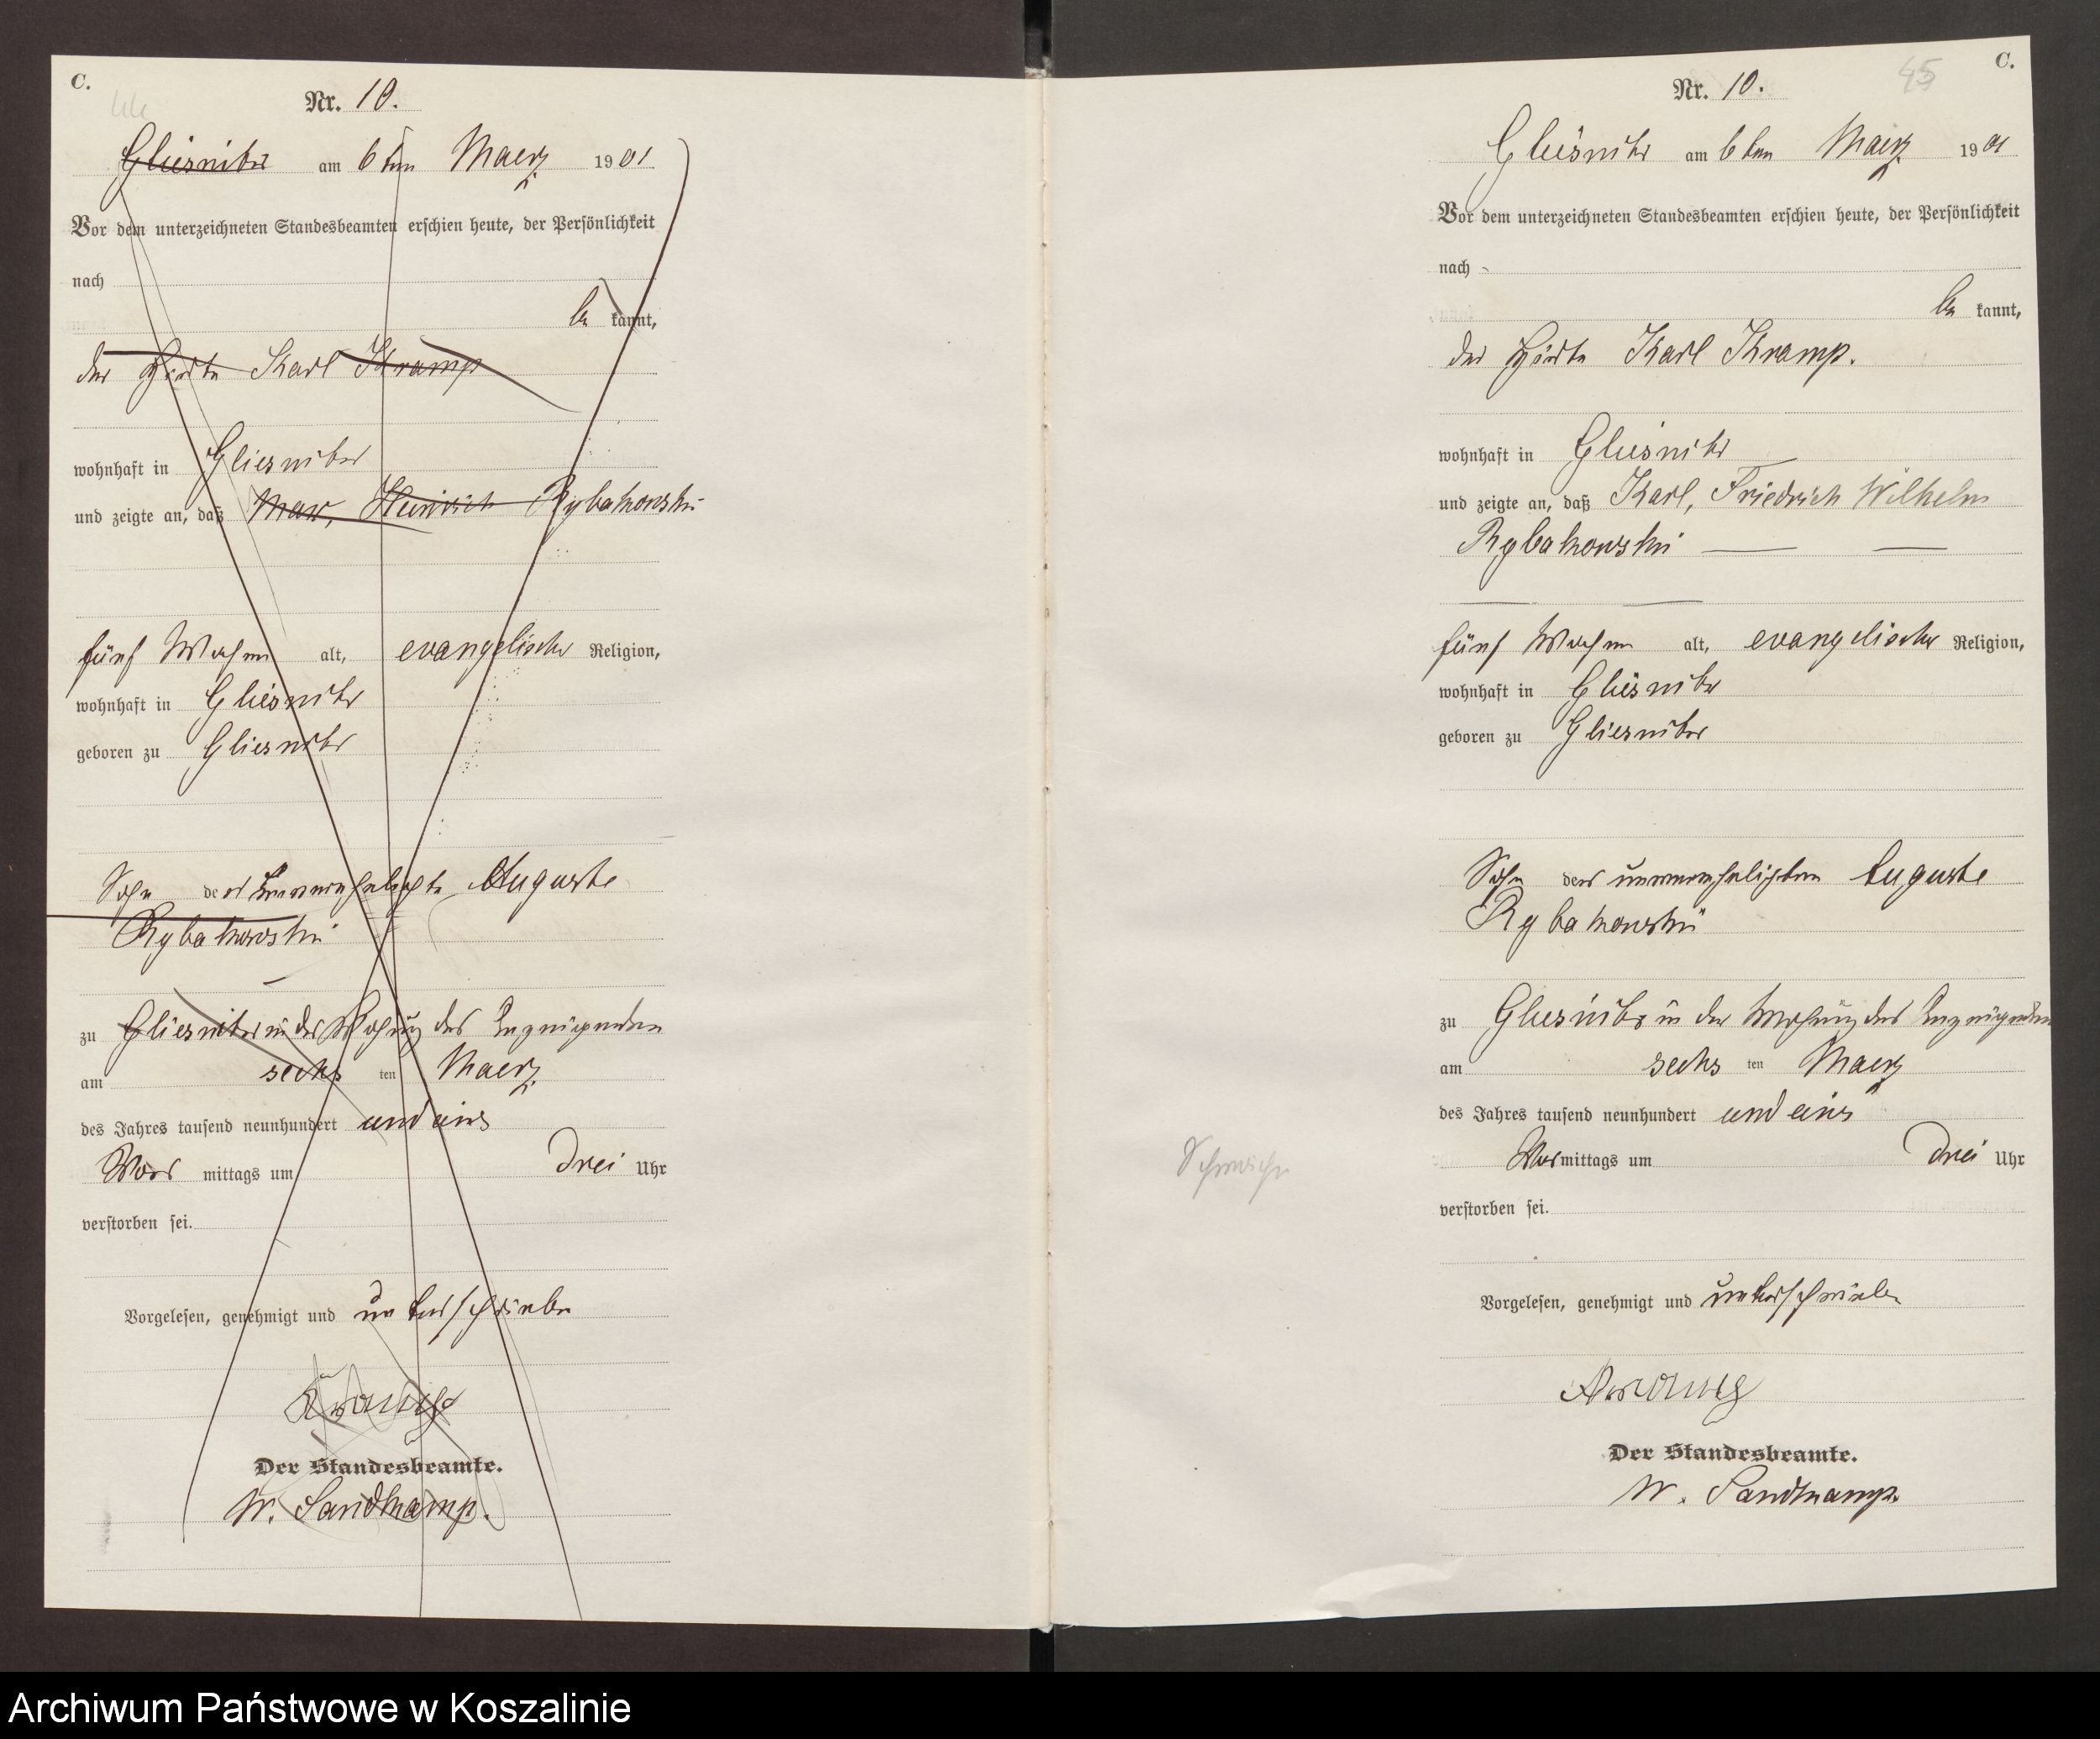 C.
44
Nr. 10.
Gliesnitz am 6ten Maerz 1901
Vor dem unterzeichneten Standesbeamten erschien heute, der Persönlichkeit
nach
be kannt,
der Hirte Karl Kramp
wohnhaft in Gliesnitz
und zeigte an, daß Max, Heinrich Rybakowski
fünf Wochen alt, evangelischer Religion,
wohnhaft in Gliesnitz
geboren zu Gliesnitz
Sohn der unverehelichte Auguste
Rybakowski
zu Gliesnitz in der Wohnung des Anzeigenden
am sechs ten Maerz
des Jahres tausend neunhundert und eins
Vor mittags um drei Uhr
verstorben sei.
Vorgelesen, genehmigt und unterschrieben
Kramp
Der Standesbeamte.
W. Sandkamp.
45
C.
Nr. 10.
Gliesnitz am 6ten Maerz 1901
Vor dem unterzeichneten Standesbeamten erschien heute, der Persönlichkeit
nach
be kannt,
der Hirte Karl Kramp.
wohnhaft in Gliesnitz
und zeigte an, daß Karl, Friedrich Wilhelm
Rybakowski
fünf Wochen alt, evangelischer Religion,
wohnhaft in Gliesnitz
geboren zu Gliesnitz
Sohn der unverehelichten Auguste
Rybakowski
zu Gliesnitz in der Wohnung des Anzeigenden
am sechs ten Maerz
des Jahres tausend neunhundert und eins
Vor mittags um drei Uhr
verstorben sei.
Vorgelesen, genehmigt und unterschrieben
Kramp
Der Standesbeamte.
W. Sandkamp.
Archiwum Państwowe w Koszalinie